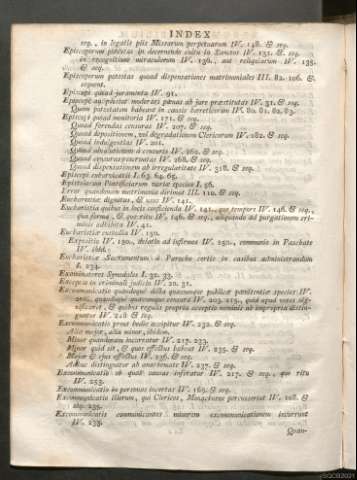 INDEX
seq., in legatis piis Missarum perpetuarum IV. 148. & seq.
Episcoporum potestas in decernendo cultu in Sanctos IV. 131. & seq.
in recognitione miraculorum IV. 136., aut reliquiarum IV. 135.
& seq.
Episcoporum potestas quoad dispensationes matrimoniales III. 82. 106. &
sequent.
Episcopi quoad juramenta IV. 91.
Episcopi quoad monitoria IV. 171. & seq.
Quoad ferendas censuras IV. 207. & seq.
Quoad depositionem, vel degradationem Clericorum IV. 282. & seq.
Quoad indulgentias IV. 201.
Quoad absolutionem a censuris IV. 262. & seq.
IV. 268. & seq.
Quoad dispensationem ab irregularitate IV. 318. & seq.
Episcopi subarcatii I. 63. 64. 65.
Epistolarum Pontificiarum varia species I. 56.
Error quandonam matrimonia dirimat III. 112. & seq.
Eucharistiæ dignitas, & usus IV. 141.
Eucharistia quibus in locis conficienda IV. 141., quo tempore IV. 146. & seq.,
qua forma, & quo ritu IV. 146. & seq., aliquando ad purgationem cri-
minis adhibita IV. 41.
Eucharistiæ custodia IV. 150.
Expositio IV. 150., delatio ad infirmos IV. 150., communio in Paschate
IV. ibid.
Eucharistiæ Sacramentum a Parocho certis in casibus administrandum
I. 234.
Examinatores Synodales I. 32. 33.
Exceptio in criminali judicio IV. 20. 31.
Excommunicatio quandoque dicta quacumque publicæ pœnitentiæ species IV.
202., quandoque quacumque censura IV. 203. 215., quid apud veteres sig-
nificaret, & quibus regulis proprie accepto nominis ab impropria distin-
guatur IV. 218 & seq.
Excommunicatio prout hodie accipitur IV. 232. & seq.
Alia major, alia minor, ibidem.
Minor quandonam incurratur IV. 217. 233.
Minor quid sit, & quos effectus habeat IV. 235. & seq.
Major & ejus effectus IV. 236. & seq.
Adhuc distinguitur ab anathemate IV. 237. & seq.
Excommunicatio ob quas causas inferatur IV. 217. & seq., quo ritu
IV. 253.
Excommunicatio in personas incertas IV. 169. & seq.
Excommunicatio illorum, qui Clericos, Monachosve percusserint IV. 208. &
seq. 235.
Excommunicatis communicantes minorem excommunicationem incurrunt
IV. 233.
Quan-
SGCB2021